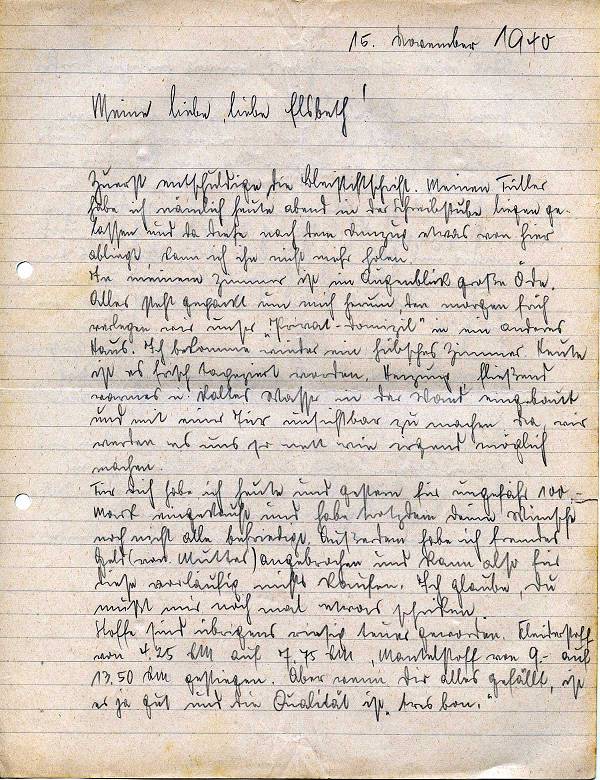 15. November 1940
Meine liebe, liebe Elsbeth!
Zuerst entschuldige die Bleistiftschrift. Meinen Füller
habe ich nämlich heute abend in der Schreibstube liegen ge-
lassen und da diese nach dem Umzug etwas von hier
abliegt, kann ich ihn nicht mehr holen.
In meinem Zimmer ist im Augenblick große Öde.
Alles steht gepackt um mich herum, denn morgen früh
verlegen wir unser "Privat-Domizil" in ein anderes
Haus. Ich bekomme wieder ein hübsches Zimmer. Heute
ist es frisch tapeziert worden. Heizung, fließend
warmes u. kaltes Wasser in der Wand eingebaut
und mit einer Tür unsichtbar zu machen. Na, wir
werden es uns so nett wie irgend möglich
machen.
Für Dich habe ich heute und gestern für ungefähr 100,-
Mark eingekauft und habe trotzdem deine Wünsche
noch nicht alle befriedigt. Außerdem habe ich fremdes
Geld (von Mutter) angebrochen und kann also für
diese vorläufig nichts kaufen. Ich glaube, Du
mußt mir noch mal etwas schicken.
Stoffe sind übrigens riesig teuer geworden. Kleiderstoff
von 4,25 RM auf 7,75 RM, Mantelstoff von 9.- auf
13,50 RM gestiegen. Aber wenn Dir alles gefällt, ist
es ja gut und die Qualität ist "tres bon."